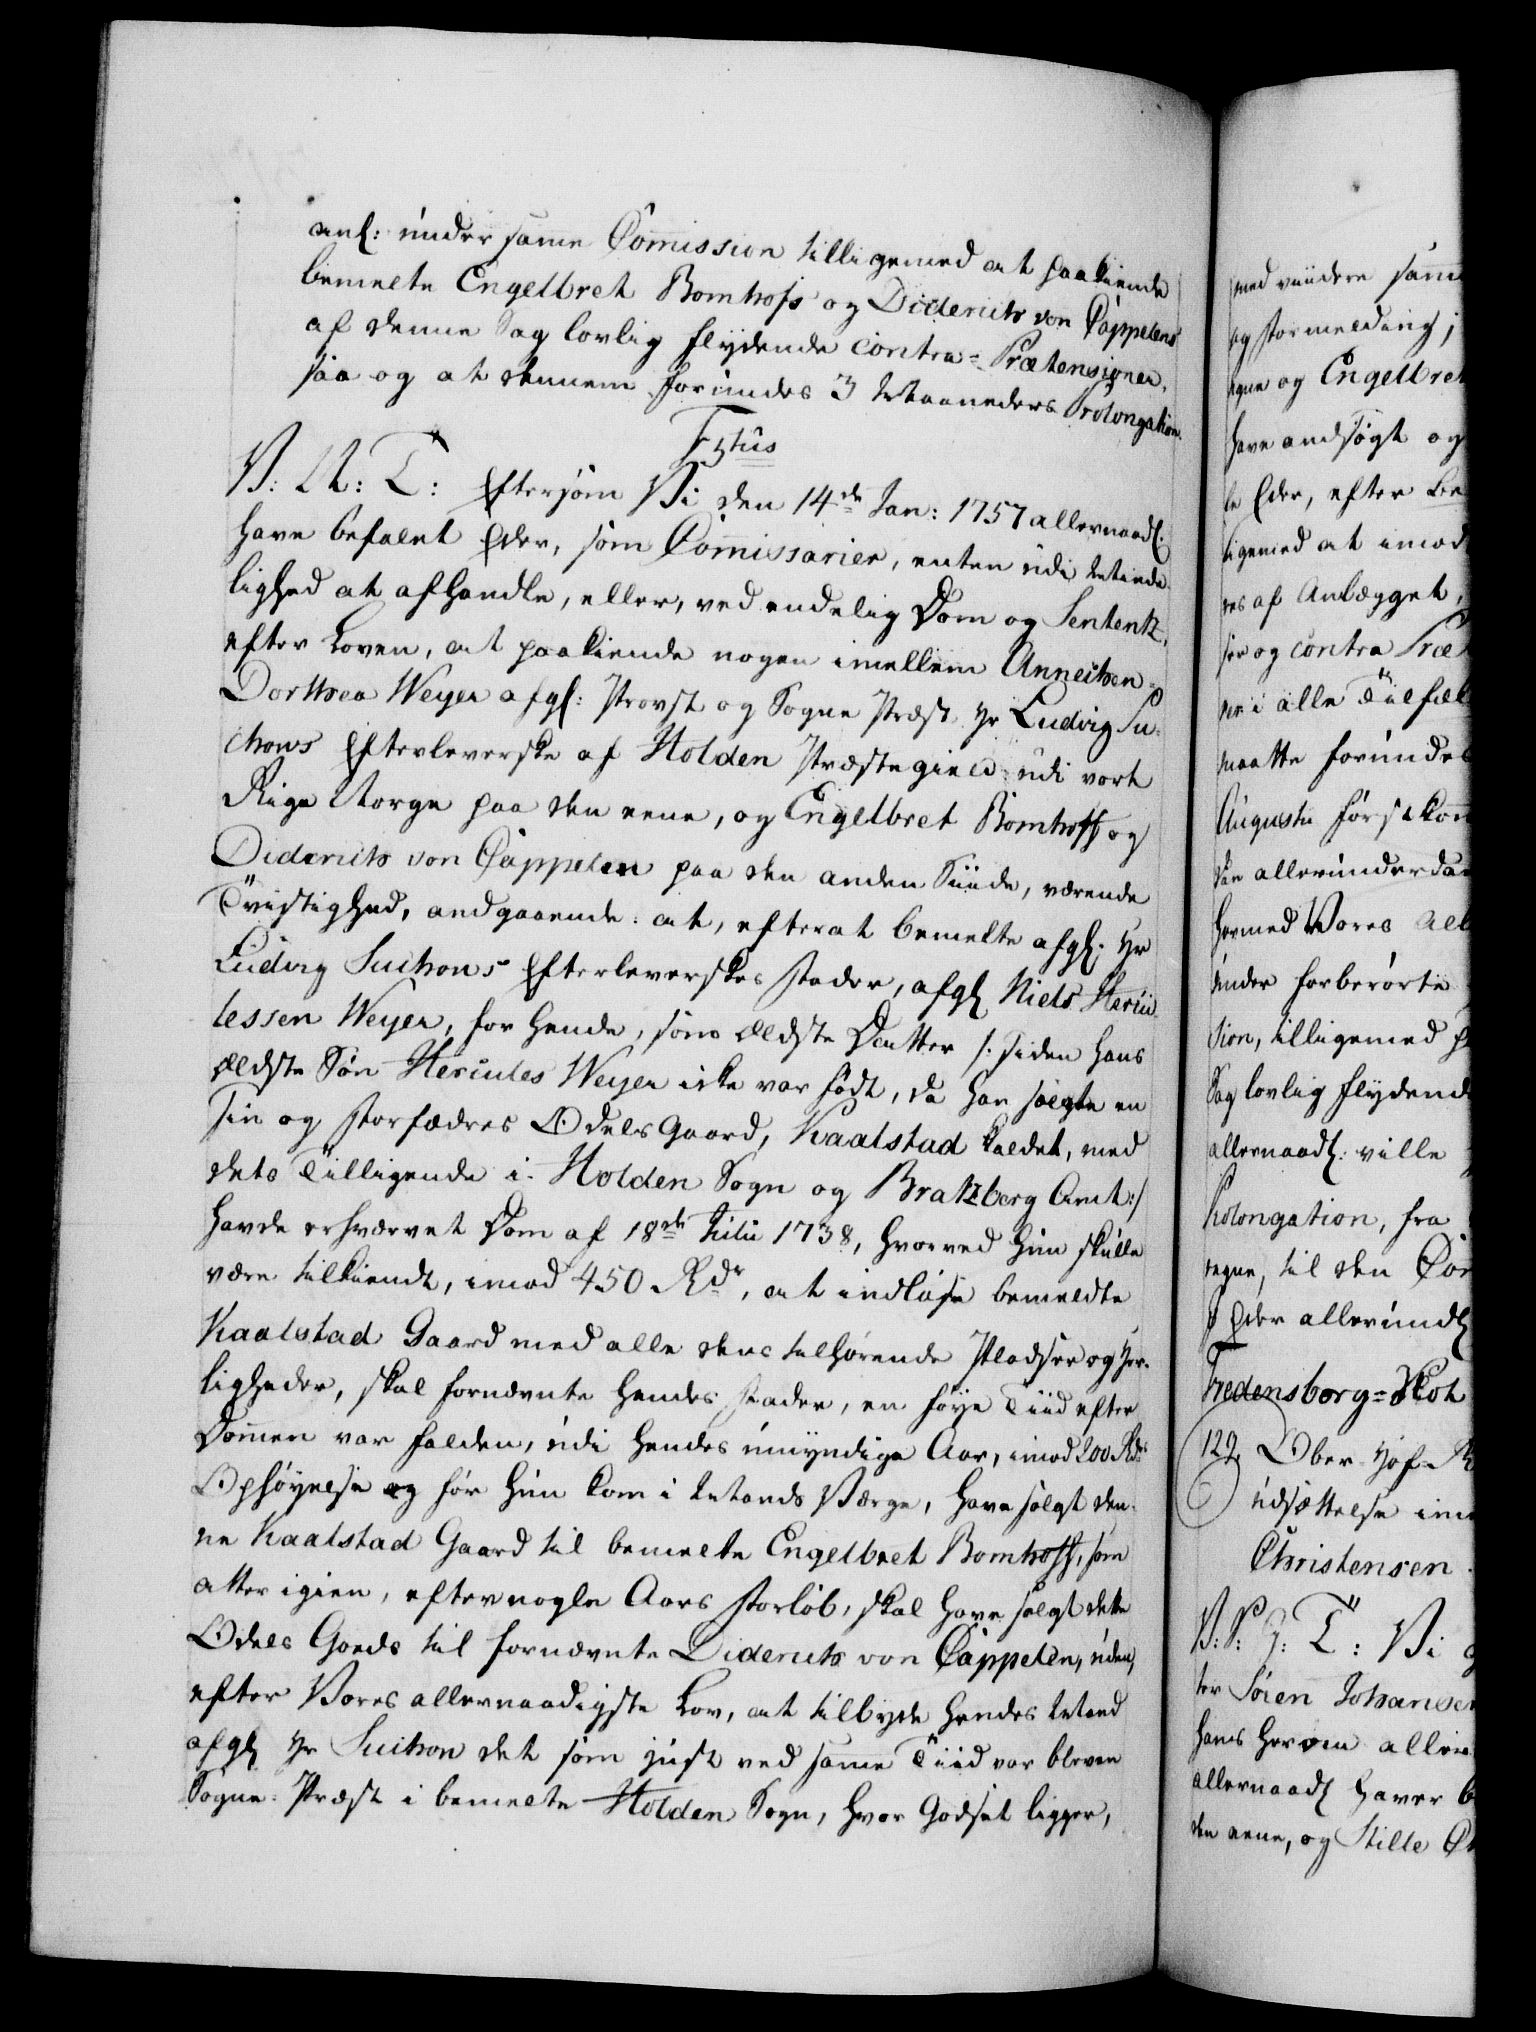 anl: under samme Commission tilligemed at paakiende
bemelte Engelbret Bomhofs og Diderichs von Cappelens
af denne Sag lovlig flydende contra-Prætensioner,
saa og at dennem forundes 3 Maaneders Prolongation.
Ttus
V: A: T: Eftersom Vi den 14de Jan: 1757 allernaadl:
have befalet Eder, som Commissarier, enten udi Minde
lighed at afhandle, eller, ved endelig Dom og Sententz,
efter Loven, at paakiende nogen imellem Annichen
Dorthea Weyer afgl: Provst og Sogne Præst Hr Ludvig Su-
chows Efterleverske af Holden Præstegield udi vort
Rige Norge paa den eene, og Engelbret Bomhoff og
Diderichs von Cappelen paa den anden Siide, værende
Tvistighed, andgaaende: at, efterat bemelte afgl: Hr
Ludvig Suchows Efterleverskes Fader, afgl Niels Hercu-
lessen Weyer, for hende, som ældste Datter /: siden hans
ældste Søn Hercules Weyer icke var født, da han solgte en
sin og Forfædres Odels Gaard, Kaalstad kaldet, med
dets Tilliggende i Holden Sogn og Bratzberg Amt:/
havde erhvervet Dom af 18de Julii 1738, hvorved hun skulle
være tilkiendt, imod 450 Rdr, at indløse bemeldte
Kaalstad Gaard med alle dens tilhørende Pladser og Her-
ligheder, skal fornævnte hendes Fader, en føye Tiid efter
Dommen var falden, udi hendes umyndige Aar, imod 200 Rdrs
Ophøyelse og før hun kom i Mands Værge, have solgt den-
ne Kaalstad Gaard til bemelte Engelbret Bomhoff, som
atter igien, efter nogle Aars Forløb, skal have solgt dette
Odels Goeds til fornævnte Diderichs von Cappelen, uden,
efter Vores allernaadigste Lov, at tilbyde hendes Mand
afgl Hr Suchow det som just ved samme Tiid var bleven
Sogne-Præst i bemelte Holden Sogn, hvor Godset ligger,
med viidere samme
og Formelding;
egne og Engelbret
have andsøgt og
le Eder, efter be
ligemed at imod
res af Anlægget,
ser og contra Præ
ver i alle Tilfæl
maatte forundes
Augustiførstkom
allerunderda
hermed Vores all
under forberørte
sion, tilligemed
Sag lovlig flydend
allernaadl: ville
Prolongation, fra
regne, til den
Eder allerundl
Fredensborg-Slot
129. Ober-Hof-M
udsættelse im
Christensen
V: T: Vi g
ter Søren Johansen
hans herom aller
allernaadl haver b
den eene, og Stille